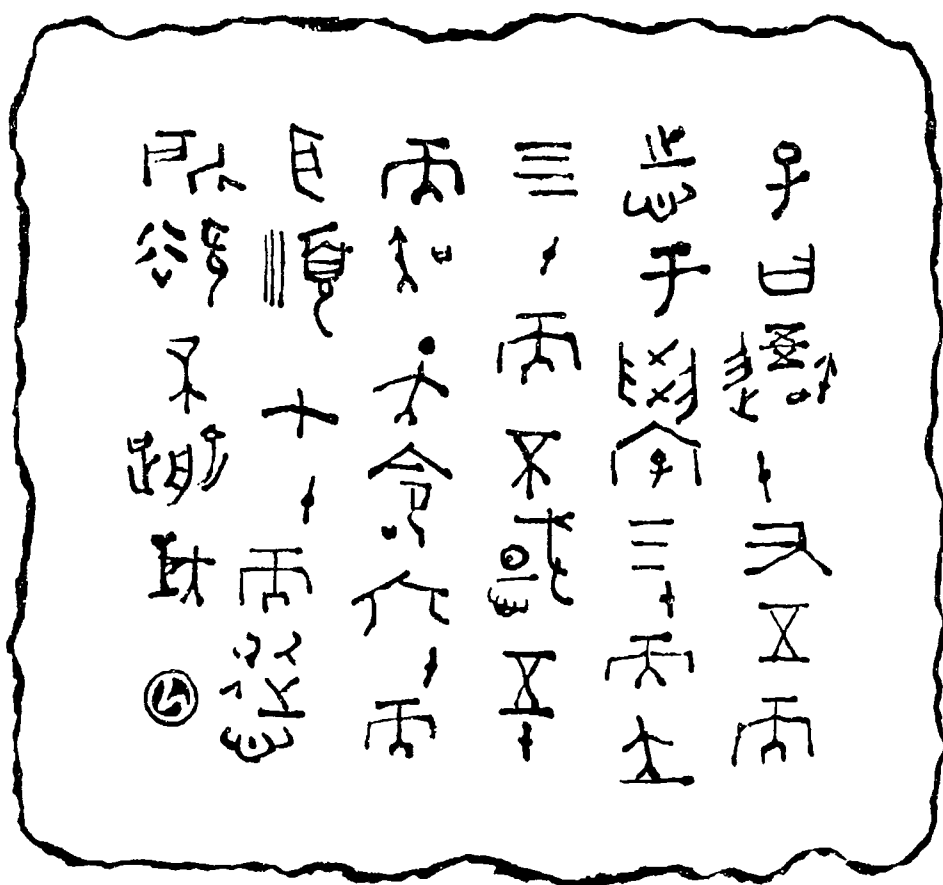 子曰吾十有五而
志于學三十而立
四十而不惑五十
而知天命六十而
耳順七十而從心
所欲不踰矩